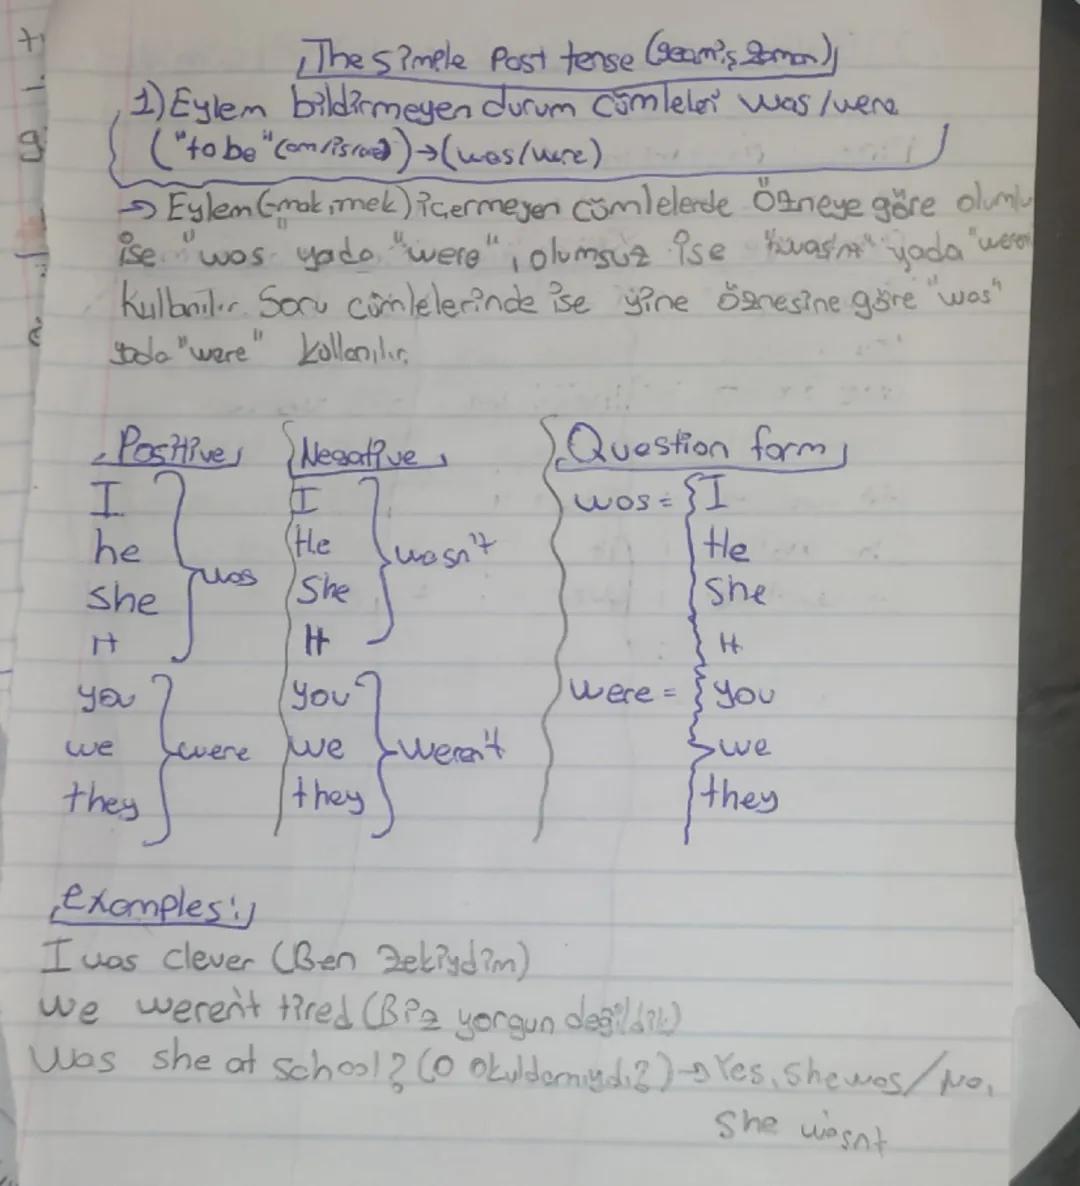 The simple Past tense (geçmiş zaman)
1) Eylem bildirmeyen durum cümleleri was/were
("to be" (am/is/are)) → (was/were)
→ Eylem (-mak, mek) içermeyen cümlelerde özneye göre olumlu
ise "was" yada "were", olumsuz ise "wasn't" yada
kullanılır. Soru cümlelerinde ise yine öznesine göre "was"
yada "were" kullanılır.
Positive Negative Question form
I I was = I
he He He
was wasn't
she She she
It It It
you you were = you
we were we weren't we
they they they
examples:
I was clever (Ben zekiydim)
we weren't tired (Biz yorgun değildik)
Was she at school? (O okuldamıydı?) → Yes, she was / No,
she wasnt